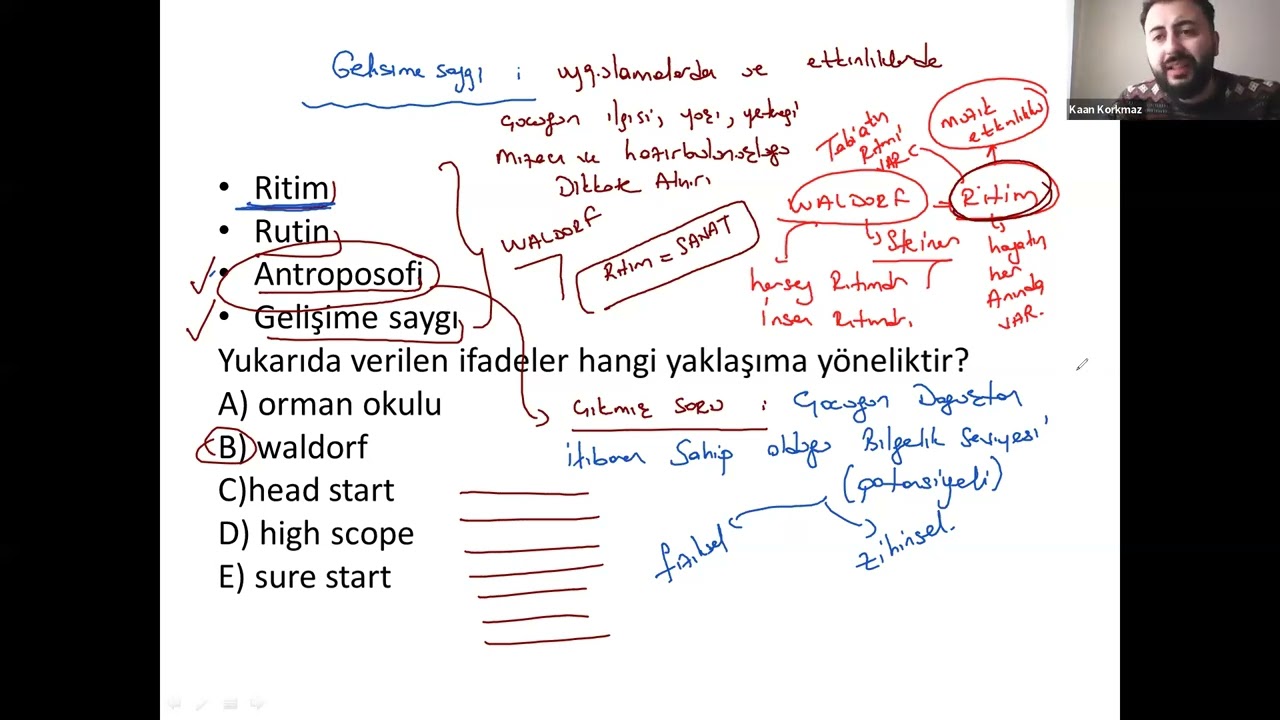 Gelişime saygı : uygulamalarda ve etkinliklerde
Çocuğun ilgisi, yaşı, yeteneği
Mizacı ve hazırbulunuşluğu
Dikkate Alınır.
Kaan Korkmaz
müzik
etkinlikleri
Tabiatın
Ritmi
VAR
WALDORF = Ritim
Steiner
herşey Ritimdir
İnsan Ritmdir.
hayatın
her
Anında
VAR.
WALDORF
Ritim = SANAT
• Ritim
• Rutin
• Antroposofi
• Gelişime saygı
Yukarıda verilen ifadeler hangi yaklaşıma yöneliktir?
A) orman okulu
B) waldorf
C)head start
D) high scope
E) sure start
Çıkmış soru : Çocuğun Doğuştan
itibaren Sahip olduğu Bilgelik Seviyesi
(potansiyeli)
fiziksel
zihinsel.